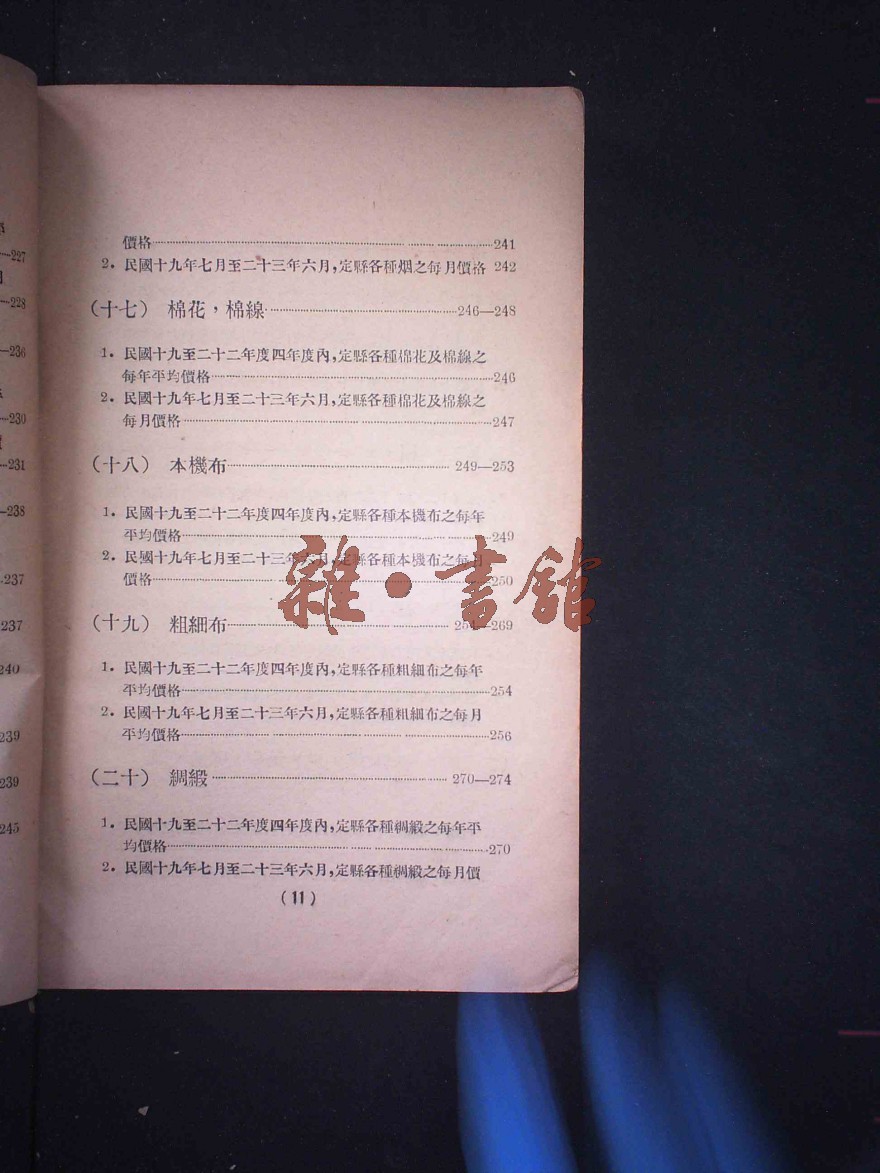 價格……241
2. 民國十九年七月至二十三年六月,定縣各種烟之每月價格 242
(十七) 棉花，棉線……246—248
1. 民國十九至二十二年度四年度內,定縣各種棉花及棉線之
每年平均價格……246
2. 民國十九年七月至二十三年六月,定縣各種棉花及棉線之
每月價格……247
(十八) 本機布……249—253
1. 民國十九至二十二年度四年度內,定縣各種本機布之每年
平均價格……249
2. 民國十九年七月至二十三年六月,定縣各種本機布之每月
價格……250
(十九) 粗細布……254—269
1. 民國十九至二十二年度四年度內,定縣各種粗細布之每年
平均價格……254
2. 民國十九年七月至二十三年六月,定縣各種粗細布之每月
平均價格……256
(二十) 綢緞……270—274
1. 民國十九至二十二年度四年度內,定縣各種綢緞之每年平
均價格……270
2. 民國十九年七月至二十三年六月,定縣各種綢緞之每月價
(11)
雜·書館
227
228
236
230
231
238
237
237
240
239
239
245